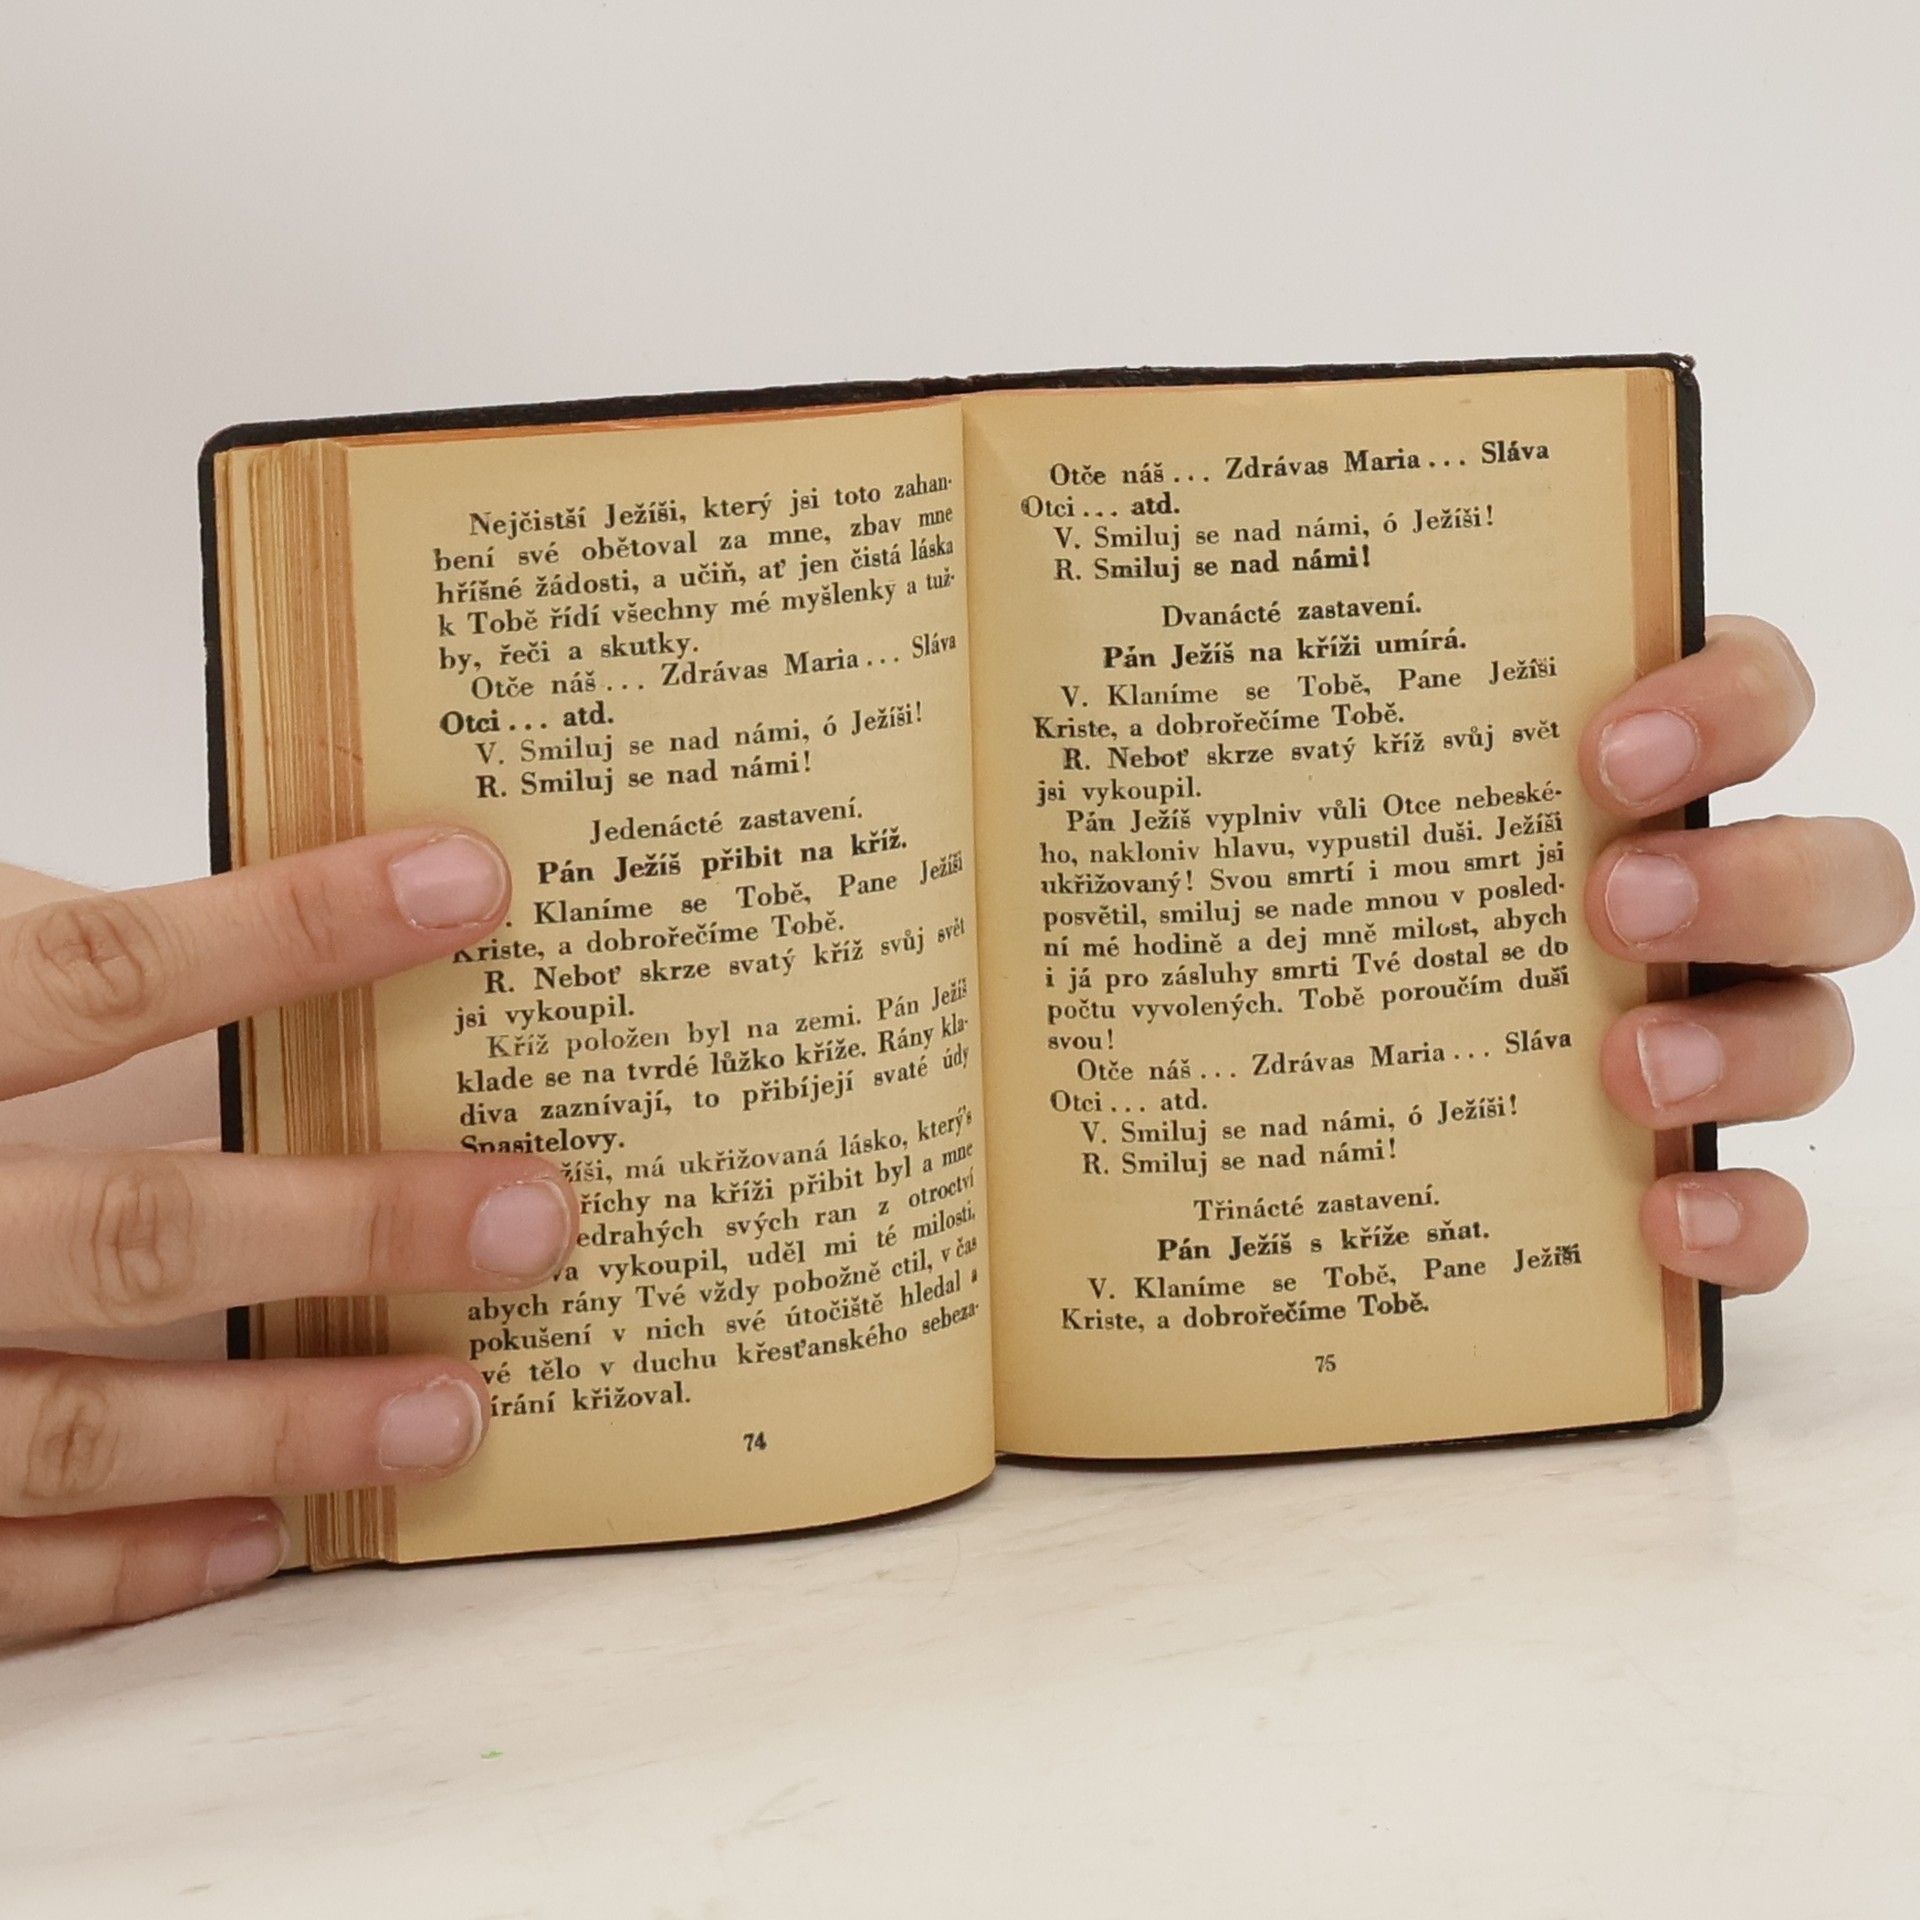 Nejčistší Ježíši, který jsi toto zahan-
bení své obětoval za mne, zbav mne
hříšné žádosti, a učiň, ať jen čistá láska
k Tobě řídí všechny mé myšlenky a tuž-
by, řeči a skutky.
Otče náš... Zdrávas Maria... Sláva
Otci... atd.
V. Smiluj se nad námi, ó Ježíši!
R. Smiluj se nad námi!
Jedenácté zastavení.
Pán Ježíš přibit na kříž.
Klaníme se Tobě, Pane Ježíši
Kriste, a dobrořečíme Tobě.
R. Neboť skrze svatý kříž svůj svět
jsi vykoupil.
Kříž položen byl na zemi. Pán Ježíš
klade se na tvrdé lůžko kříže. Rány kla-
diva zaznívají, to přibíjejí svaté údy
Spasitelovy.
má ukřižovaná lásko, který's
na kříži přibit byl a mne
svých ran z otroctví
vykoupil, uděl mi té milosti,
abych rány Tvé vždy pobožně ctil, v čas
pokušení v nich své útočiště hledal a
tělo v duchu křesťanského sebeza-
křižoval.
74
Otče náš... Zdrávas Maria... Sláva
Otci... atd.
V. Smiluj se nad námi, ó Ježíši!
R. Smiluj se nad námi!
Dvanácté zastavení.
Pán Ježíš na kříži umírá.
V. Klaníme se Tobě, Pane Ježíši
Kriste, a dobrořečíme Tobě.
R. Neboť skrze svatý kříž svůj svět
jsi vykoupil.
Pán Ježíš vyplniv vůli Otce nebeské-
ho, nakloniv hlavu, vypustil duši. Ježíši
ukřižovaný! Svou smrtí i mou smrt jsi
posvětil, smiluj se nade mnou v posled-
ní mé hodině a dej mně milost, abych
i já pro zásluhy smrti Tvé dostal se do
počtu vyvolených. Tobě poroučím duši
svou!
Otče náš... Zdrávas Maria... Sláva
Otci... atd.
V. Smiluj se nad námi, ó Ježíši!
R. Smiluj se nad námi!
Třinácté zastavení.
Pán Ježíš s kříže sňat.
V. Klaníme se Tobě, Pane Ježíši
Kriste, a dobrořečíme Tobě.
75